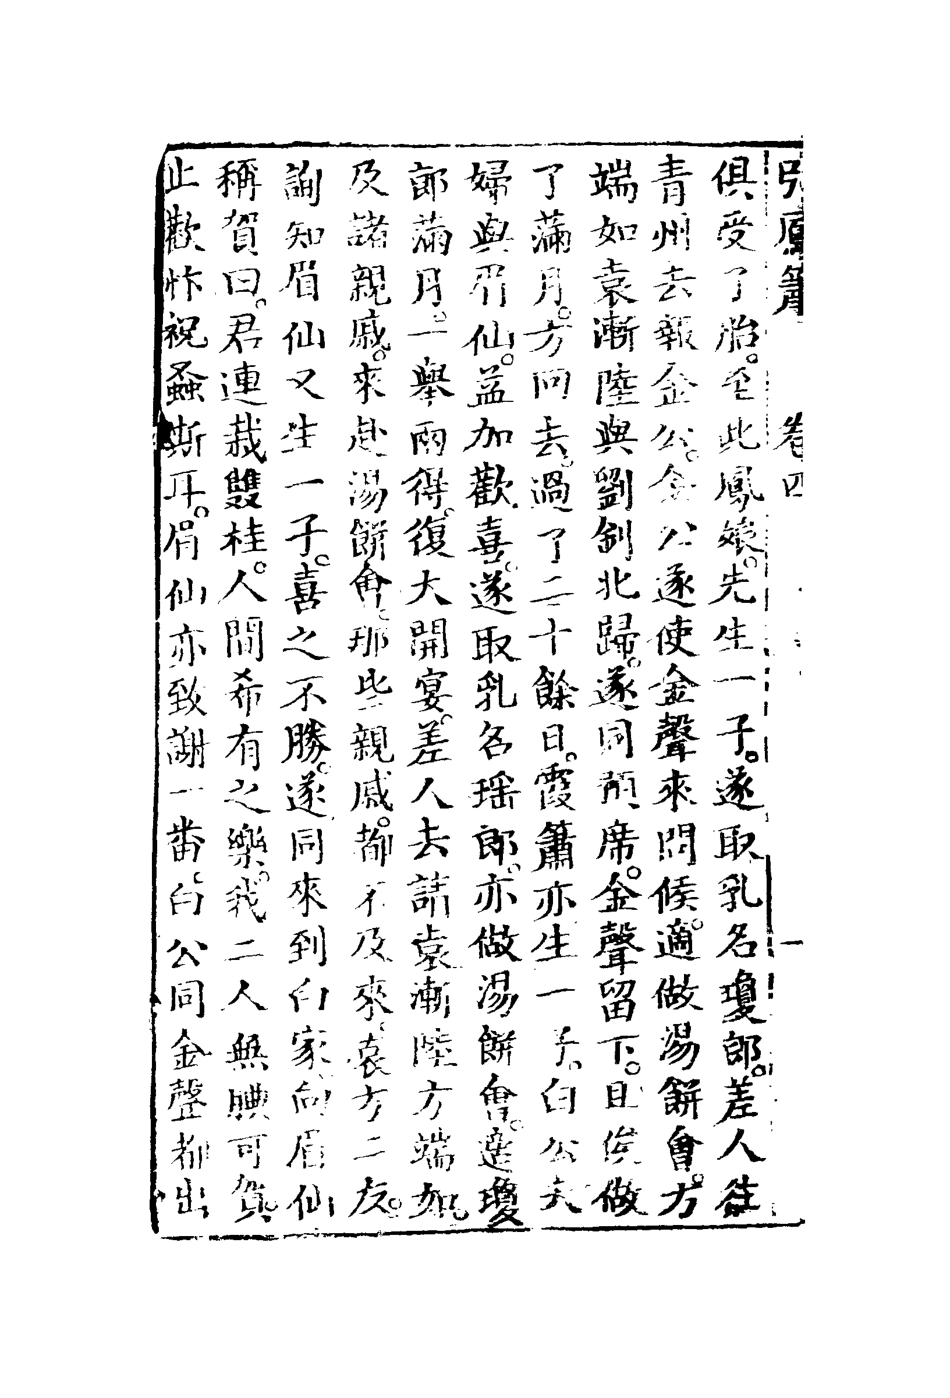 引鳳簫　卷四　一
俱受了胎。至此鳳娘。先生一子。遂取乳名瓊郎。差人往
青州去報金公。金公遂使金聲來問候。適做湯餅會。方
端如袁漸陸與劉釗北歸。遂同前席。金聲留下。且俟做
了滿月。方回去。過了二十餘日。霞簫亦生一子。白公夫
婦與眉仙。益加歡喜。遂取乳名瑶郎。亦做湯餅會。這瓊
郎滿月。一舉兩得。復大開宴。差人去請袁漸陸方端如。
及諸親戚。來赴湯餅會。那些親戚。都不及來。袁方二友。
詢知眉仙又生一子。喜之不勝。遂同來到白家。向眉仙
稱賀曰。君連栽雙桂。人間希有之樂。我二人無腆可賀。
止歡忭祝螽斯耳。眉仙亦致謝一番。白公同金聲都出